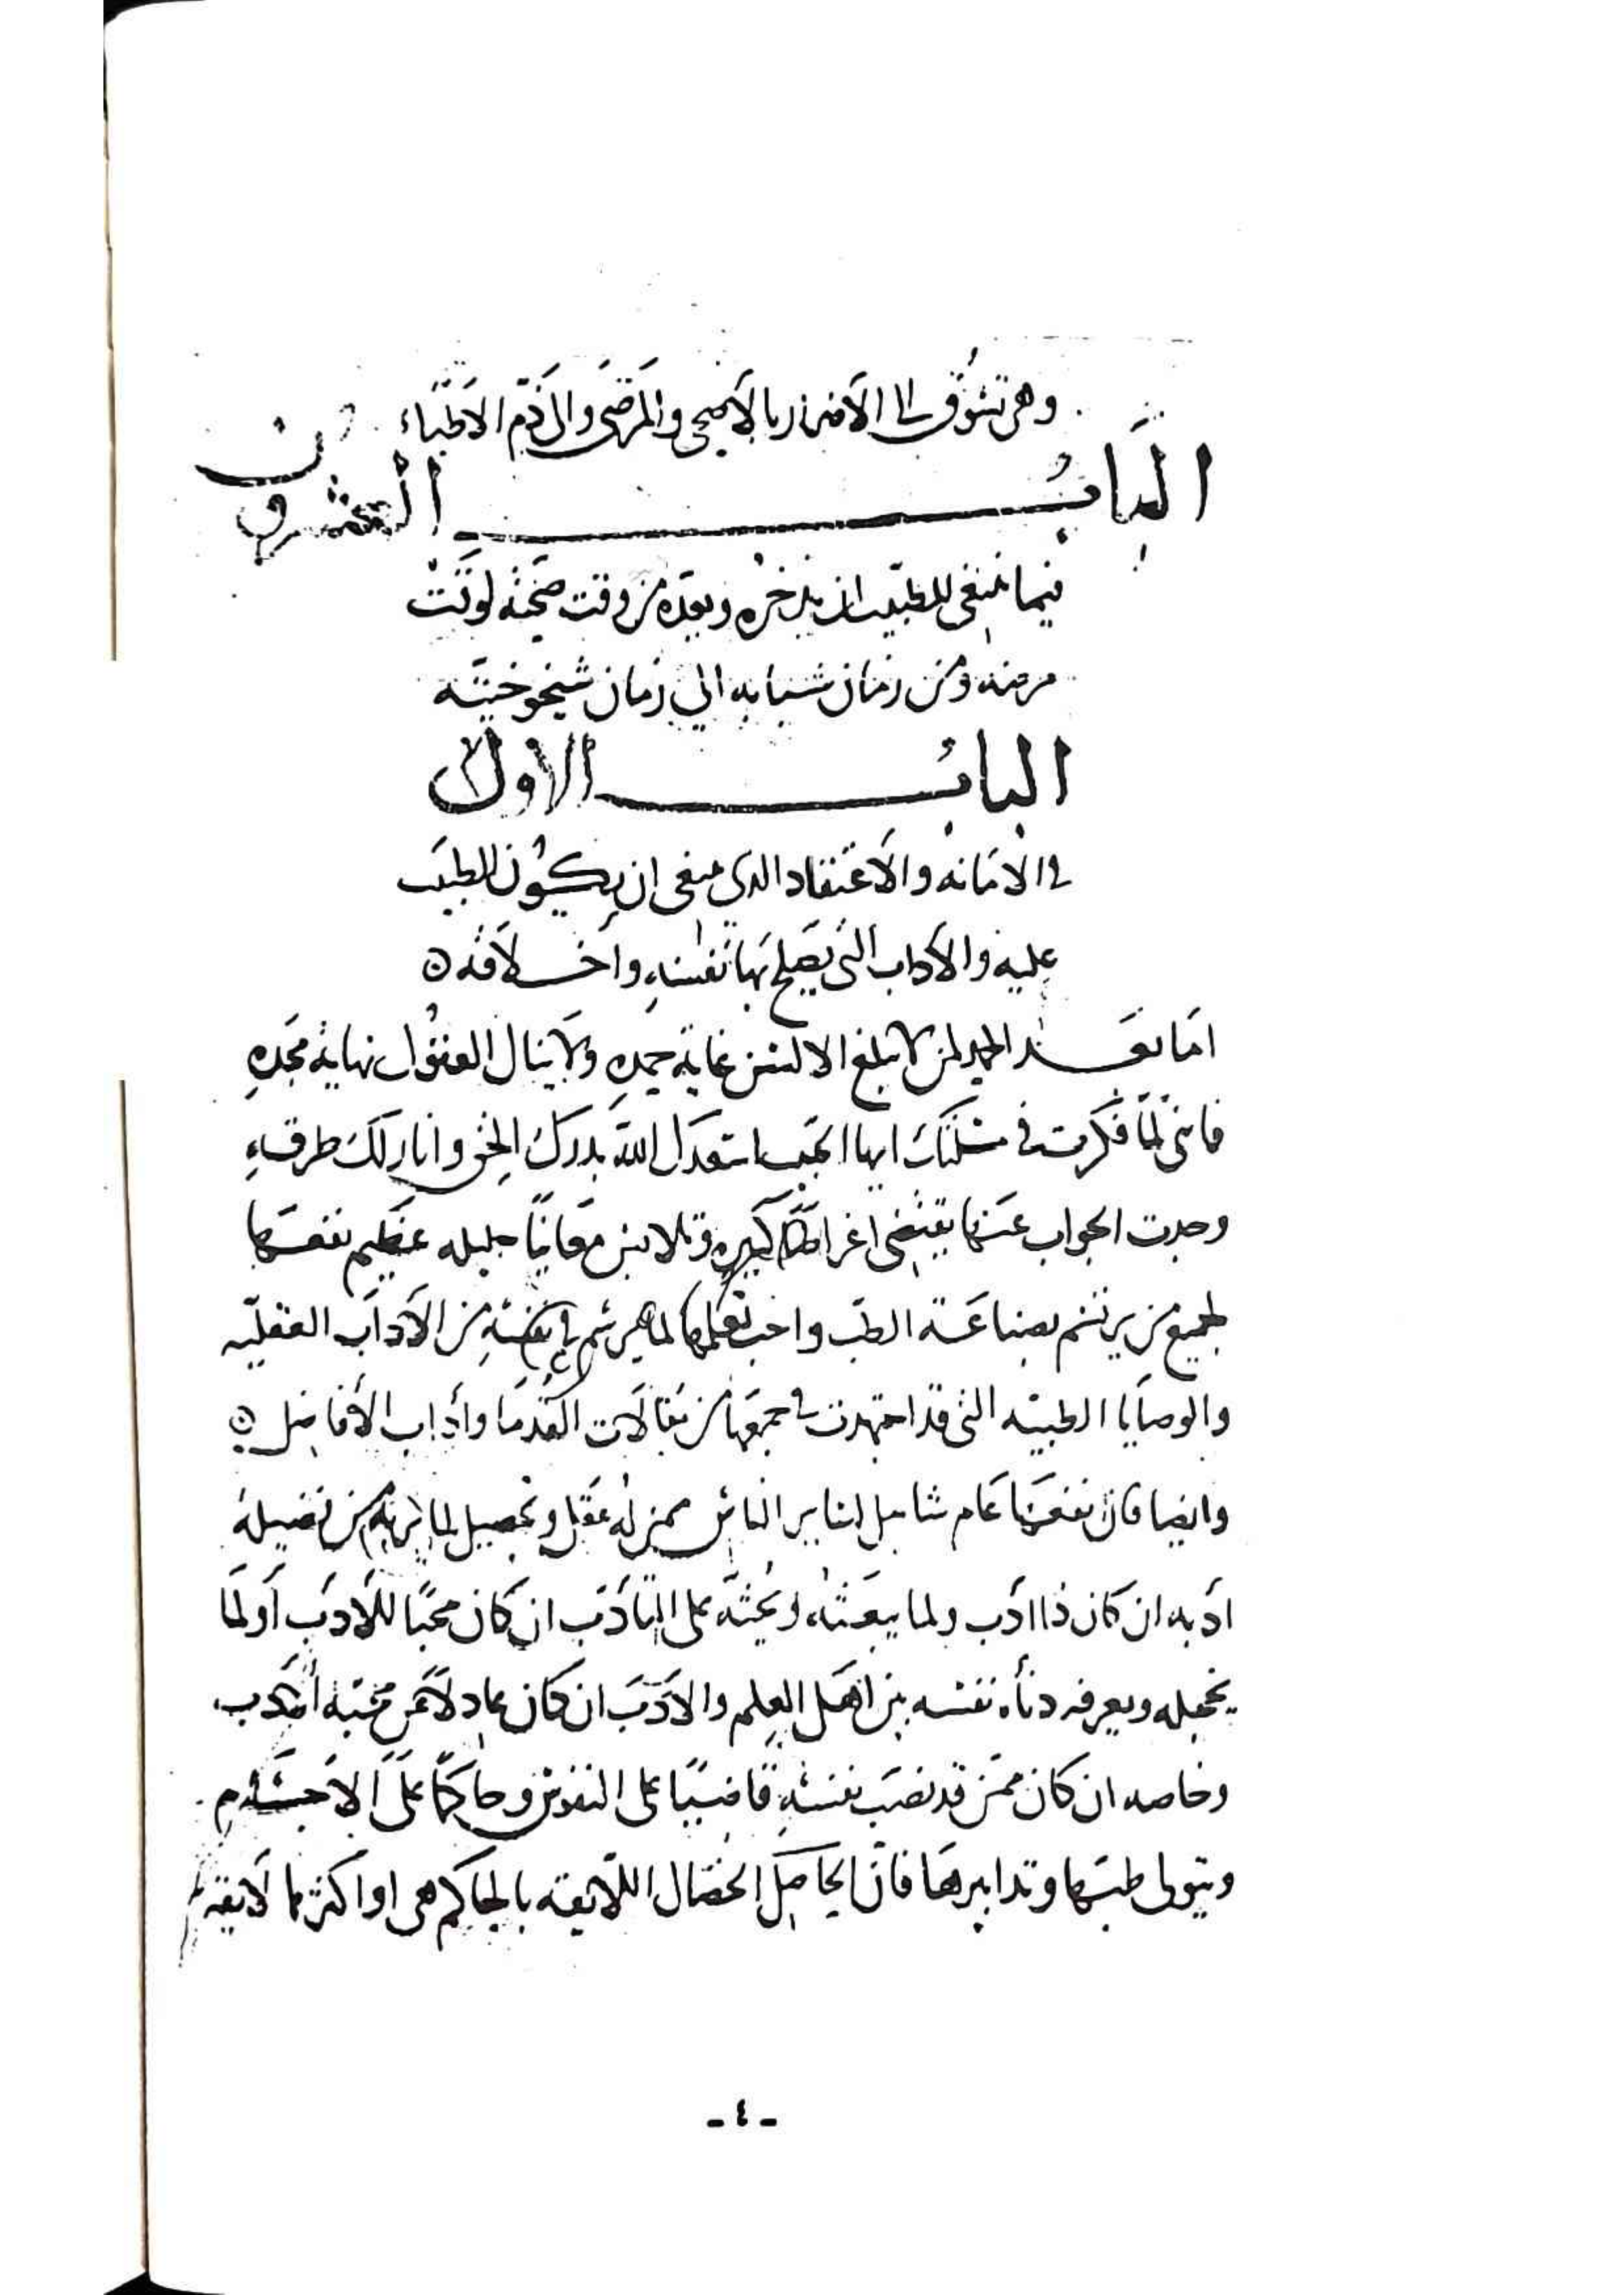 وهي تشوق الى الأضرار بالأصحى والمرضَى والى ذَمّ الاطبّاء
البابُ العشرون
فيما ينبغي للطبيب ان يدخره ويعدّه من وقت صحّته لوقت
مرضه ومن زمان شبابه الي زمان شيخوخيته
البابُ الاول
في الامَانه والاعتقاد الدى ينبغى ان يكون الطبيَب
عليه والآداب التى يصلح بها نفسه واخلاقه
امّا بعَد الحمد لمن لا تبلغ الالسن غاية حمدِه ولا ينال العقول نهاية مجَدِه
فانني لمّا فكرت في مسئلتك ايها المحب اسعدك الله بدرك الحق وانار لك طرقه
وجدت الجواب عنها يقتضى اغراضًا كبيره وتلابس معَانيًا جليله عظيم نفعها
لجميع من يرتسم بصناعَة الطبّ واجب تعلمها لما هي في نفسه من الآداب العقليّه
والوصايا الطبيّه التى قد اجتهدت في جمعها من مقالات القدما وأداب الأفاضل
وايضا فان نفعها عَام شامل لسَاير الناس ممن له عَقل وتحصيل لما من فضيلة
ادَبه ان كان ذا ادَب ولما يبعَثه ويحثه على التأدّب ان كان محبًا للأدَبِ أو لمَا
يخجله ويعرفه دنأة نفسه بين اهَل العِلم والادَب ان كان عادلاً عَن محبّة أدب
وخاصه ان كان ممَن قد نصَب نفسَه قاضيًا على النفوس وحاكمًا عَلَى الاجسَام
ويتولى طبّها وتدابيرهَا فان الحاصل الخصَال اللآيقه بالحاكم هى او اكثرها لايقه
-٤-